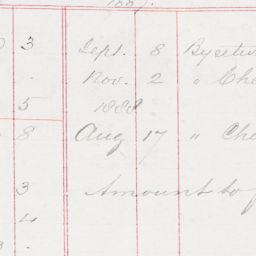 1887.
3 Sept. 8 By
. Nov. 2 " Che
5 1888
8 Aug 17 " Che
3 Amount to
4
.